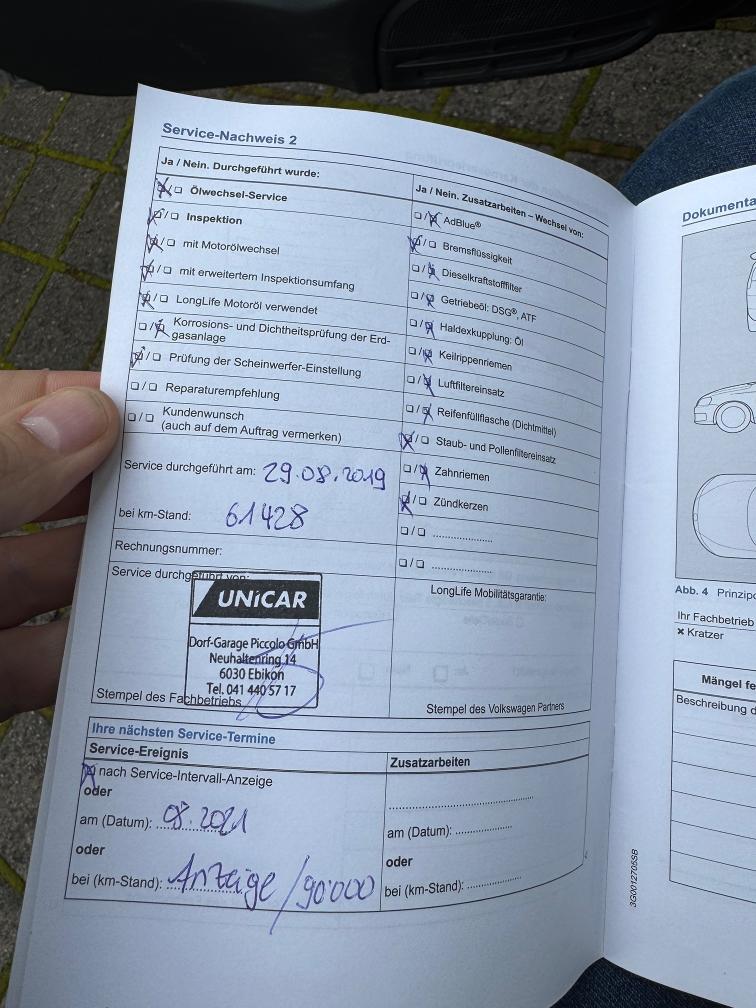 Service-Nachweis 2
Ja / Nein. Durchgeführt wurde:
Ölwechsel-Service
Inspektion
mit Motorölwechsel
mit erweitertem Inspektionsumfang
LongLife Motoröl verwendet
Korrosions- und Dichtheitsprüfung der Erd-
gasanlage
Prüfung der Scheinwerfer-Einstellung
Reparaturempfehlung
Kundenwunsch
(auch auf dem Auftrag vermerken)
Service durchgeführt am: 29.08.2019
bei km-Stand: 61428
Rechnungsnummer:
Service durchgeführt von:
UNiCAR
Dorf-Garage Piccolo GmbH
Neuhaltenring 14
6030 Ebikon
Tel. 041 440 57 17
Stempel des Fachbetriebs
Ja / Nein. Zusatzarbeiten – Wechsel von:
AdBlue®
Bremsflüssigkeit
Dieselkraftstofffilter
Getriebeöl: DSG®, ATF
Haldexkupplung: Öl
Keilrippenriemen
Luftfiltereinsatz
Reifenfüllflasche (Dichtmittel)
Staub- und Pollenfiltereinsatz
Zahnriemen
Zündkerzen
LongLife Mobilitätsgarantie:
Stempel des Volkswagen Partners
Ihre nächsten Service-Termine
Service-Ereignis
nach Service-Intervall-Anzeige
oder
am (Datum): 08.2021
oder
bei (km-Stand): Anzeige / 90'000
Zusatzarbeiten
am (Datum):
oder
bei (km-Stand):
3G0012705SB
Dokumenta
Abb. 4 Prinzipd
Ihr Fachbetrieb
× Kratzer
Mängel fe
Beschreibung d